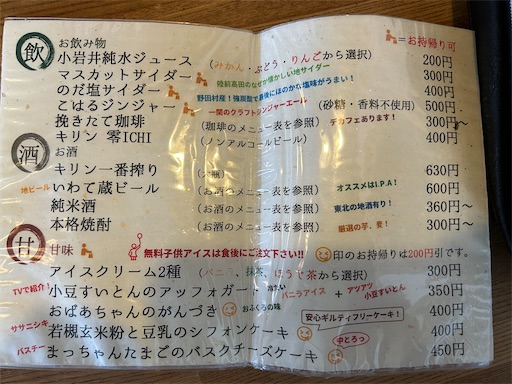 飲 お飲み物 =お持帰り可
小岩井純水ジュース (みかん・ぶどう・りんごから選択) 200円
マスカットサイダー 陸前高田のなぜか懐かしい地サイダー 300円
のだ塩サイダー 野田村産!強炭酸で最後にほのかな塩味がうまい! 400円
こはるジンジャー 一関のクラフトジンジャーエール (砂糖・香料不使用) 500円
挽きたて珈琲 (珈琲のメニュー表を参照) デカフェあります! 300円～
キリン 零ICHI (ノンアルコールビール) 400円
酒 お酒
キリン一番搾り 630円
地ビール いわて蔵ビール (お酒のメニュー表を参照) オススメはI.P.A! 600円
純米酒 (お酒のメニュー表を参照) 東北の地酒有り! 360円～
本格焼酎 (お酒のメニュー表を参照) 厳選の芋、麦! 300円～
甘 甘味 無料子供アイスは食後にご注文下さい!! 印のお持帰りは200円引です。
アイスクリーム2種 (バニラ、抹茶、ほうじ茶から選択) 300円
TVで紹介! 小豆すいとんのアッフォガート 冷たいバニラアイス + アツアツ小豆すいとん 350円
おばあちゃんのがんづき おふくろの味 400円
ササニシキ 若槻玄米粉と豆乳のシフォンケーキ 安心ギルティフリーケーキ! 400円
バスチー まっちゃんたまごのバスクチーズケーキ 中とろっ 450円